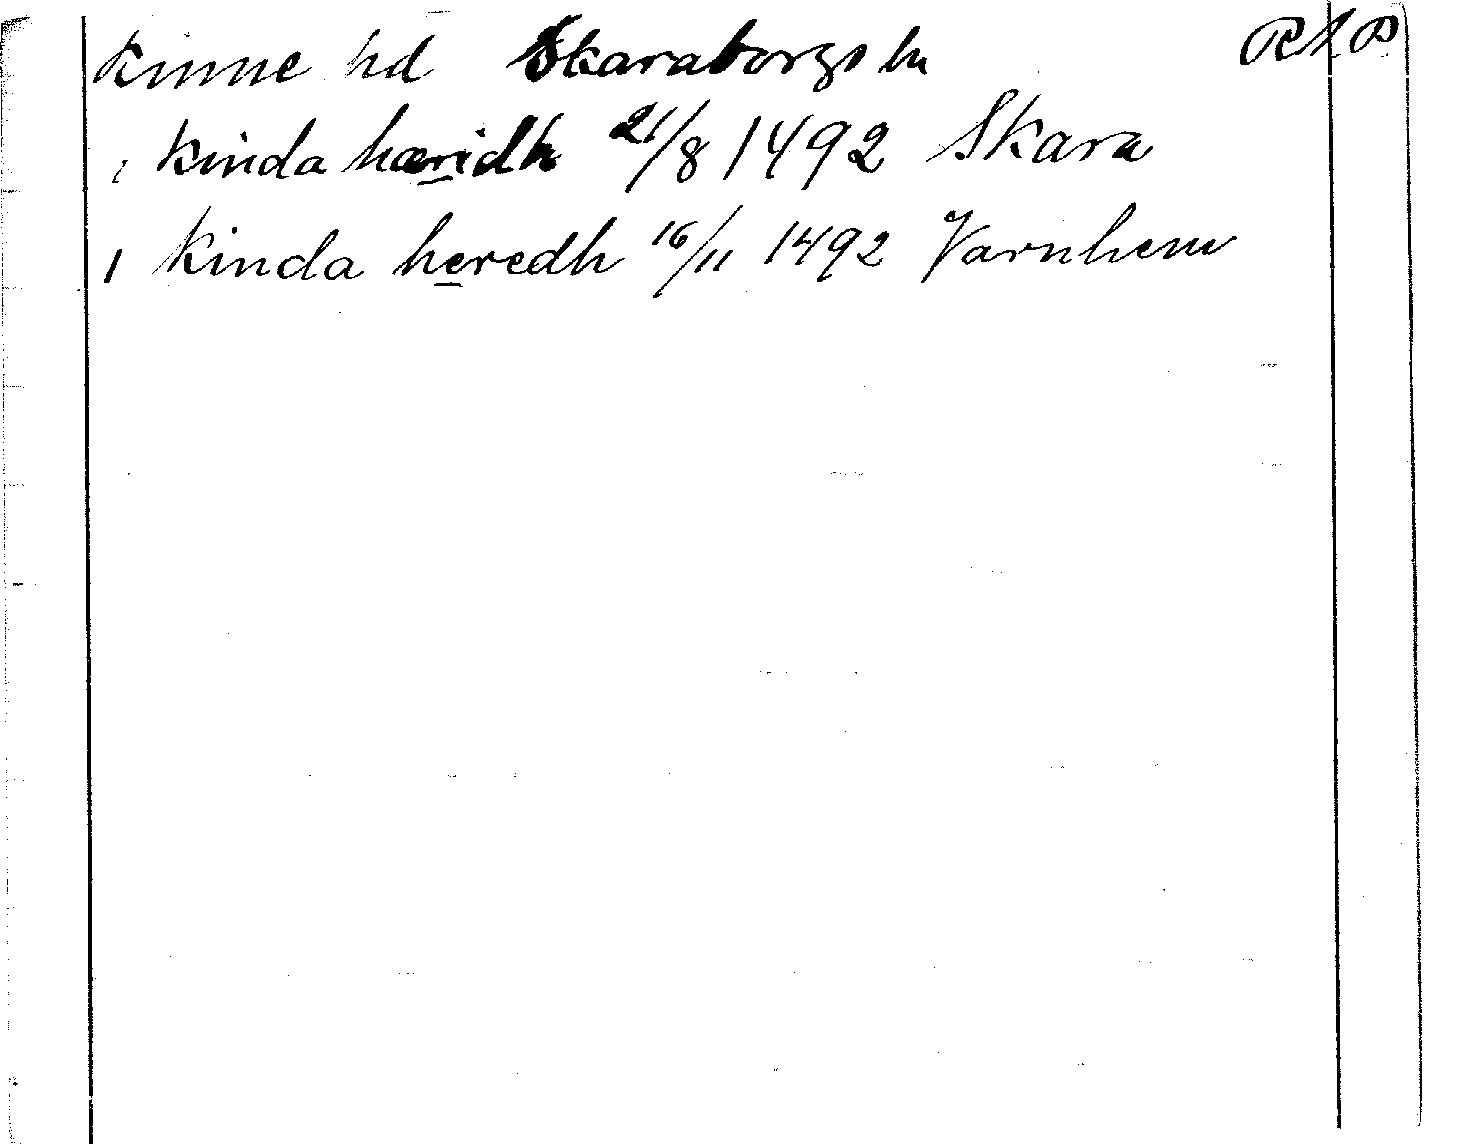 Kinne hd Skaraborgs ln RAP
i Kinda hæridh 21/8 1492 Skara
i Kinda heredh 16/11 1492 Varnhem